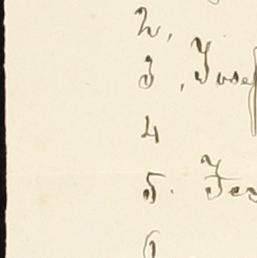 2.
3. Josef
4
5. Fer
6